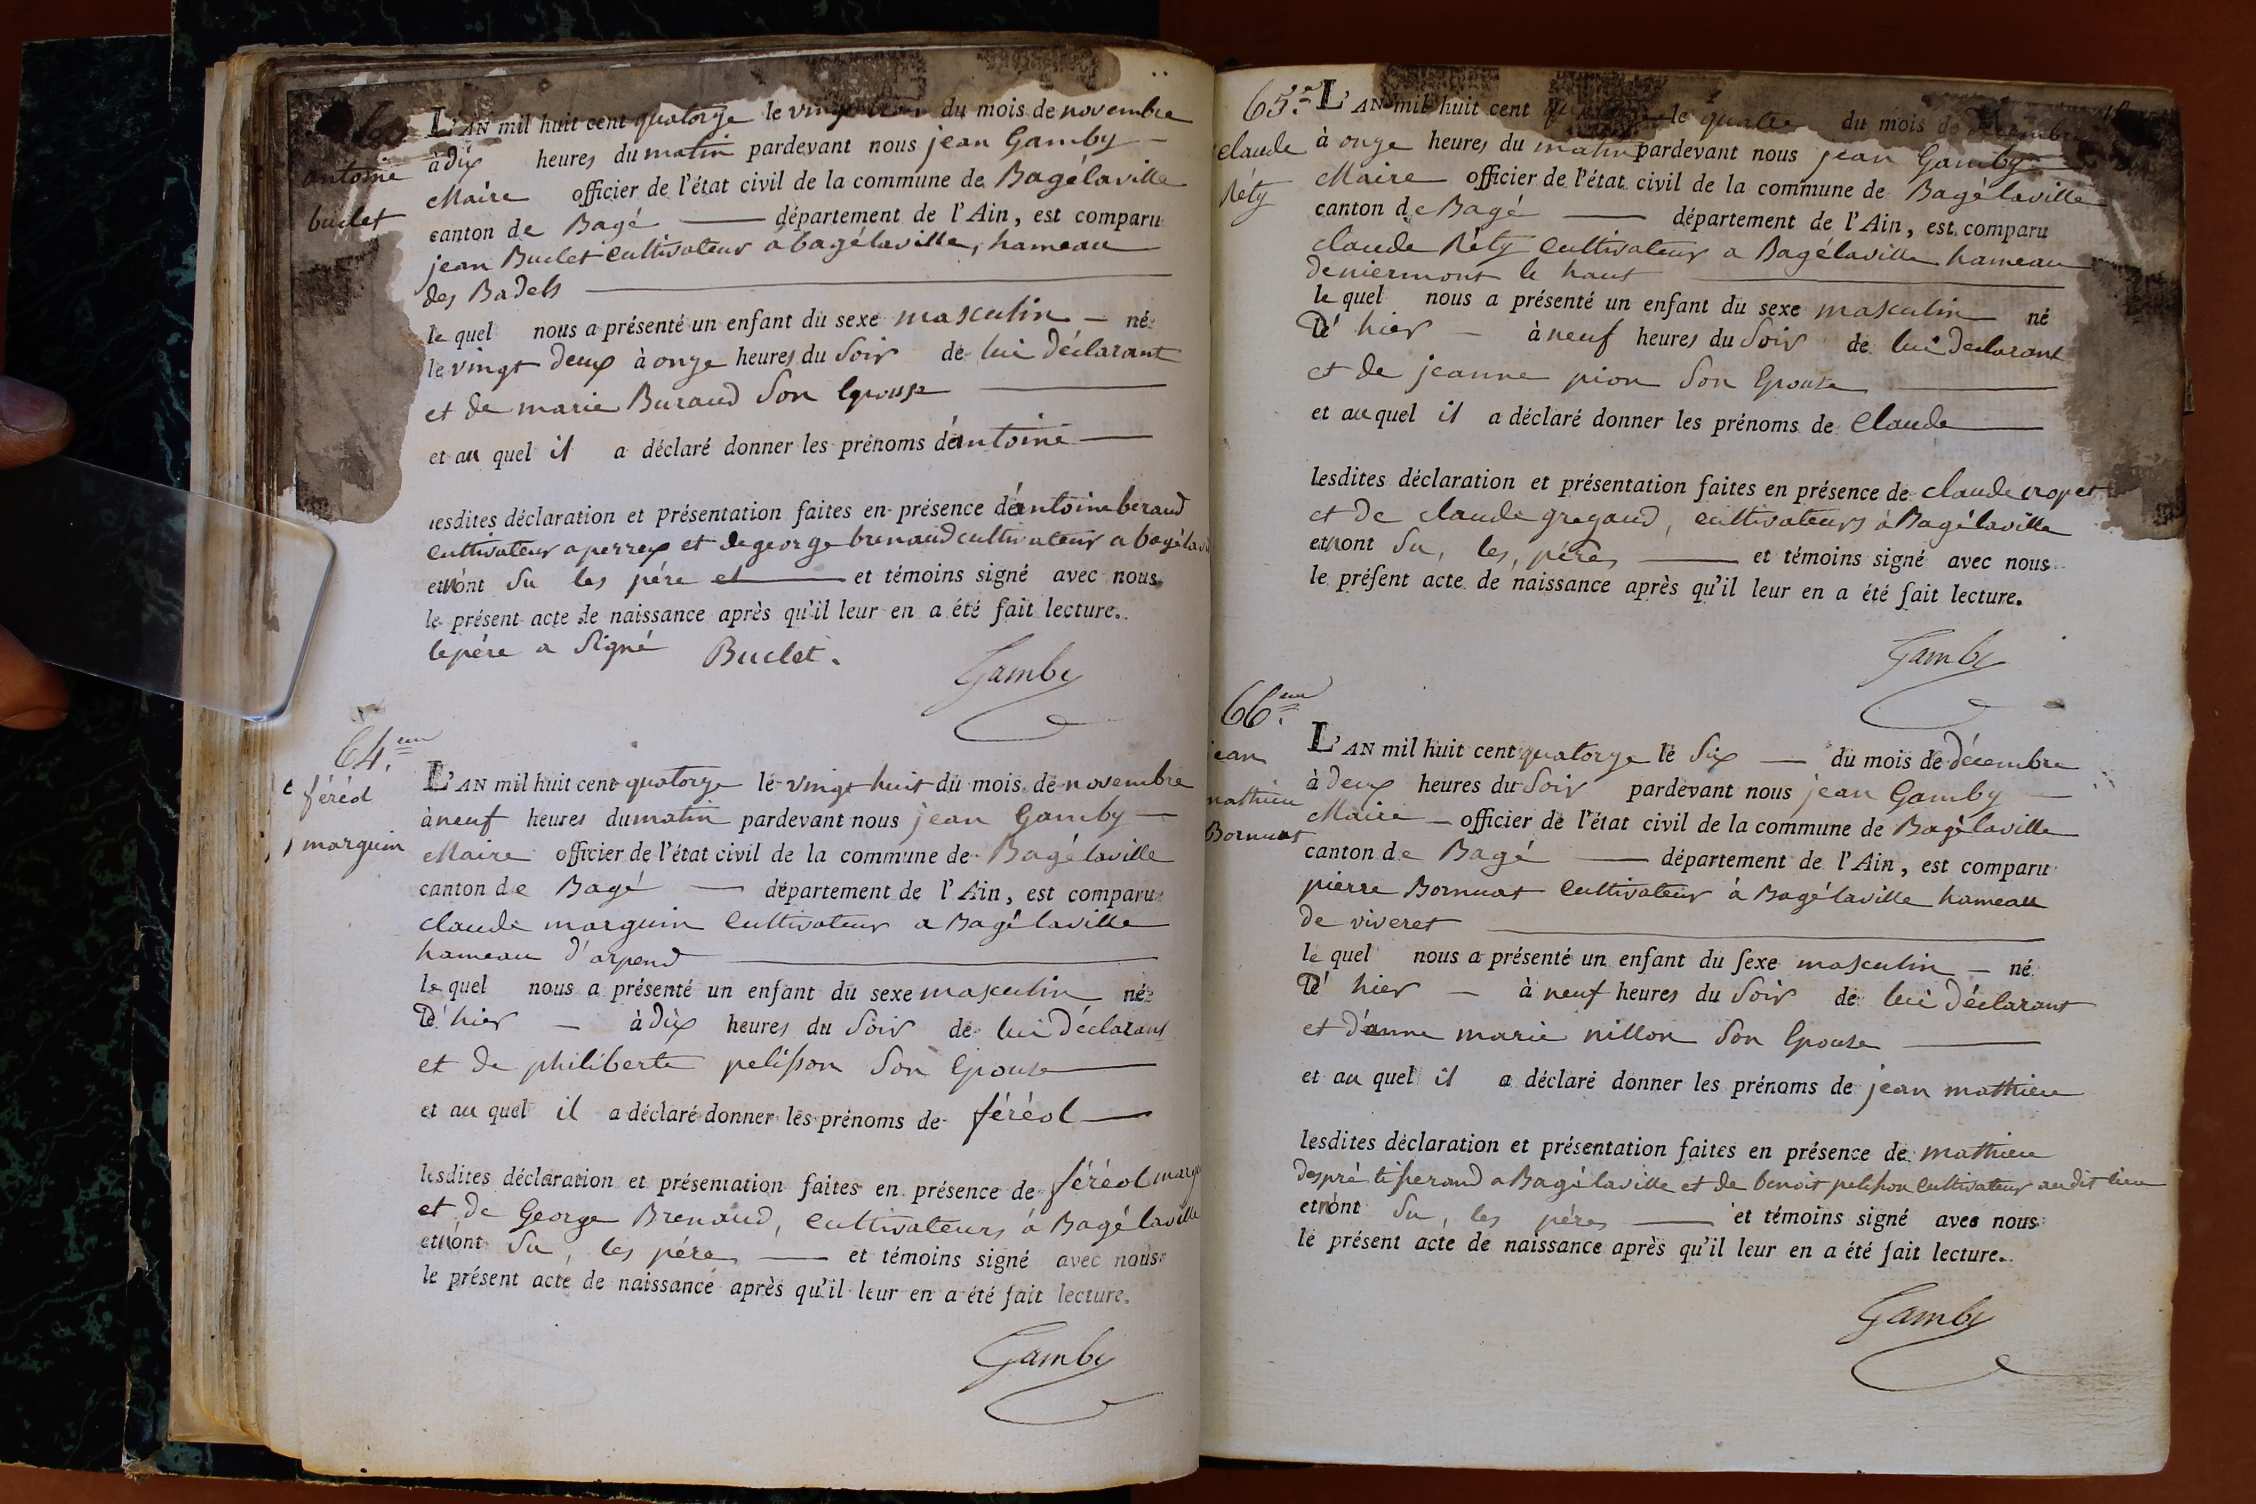 antoine
buclet
L'AN mil huit cent quatorze le du mois de novembre
à dix heures du matin pardevant nous jean Gamby
Maire officier de l'état civil de la commune de Bagélaville
canton de Bagé département de l'Ain, est comparu
jean Buclet cultivateur a bagélaville, hameau
des Badels
le quel nous a présenté un enfant du sexe masculin né
le vingt deux à onze heures du soir de lui déclarant
et de marie Buraud son epouse
et au quel il a déclaré donner les prénoms d'antoine
lesdites déclaration et présentation faites en présence d'antoine beraud
cultivateur a perrex et de george brenaud cultivateur a bagélavi
et n'ont su les pére et et témoins signé avec nous
le présent acte de naissance après qu'il leur en a été fait lecture.
le pére a signé Buclet.
Gamby
64.eme
féréol
marguin
L'AN mil huit cent quatorze le vingt huit du mois de novembre
à neuf heures du matin pardevant nous jean Gamby
Maire officier de l'état civil de la commune de Bagélaville
canton de Bagé département de l'Ain, est comparu
claude marguin cultivateur a Bagélaville
hameau d'arpend
le quel nous a présenté un enfant du sexe masculin né
d'hier à dix heures du soir de lui déclarant
et de philiberte pelisson son epouse
et au quel il a déclaré donner les prénoms de féréol
lesdites déclaration et présentation faites en présence de féréol margu
et de George Brenaud, cultivateurs à Bagélaville
et n'ont su, les péres et témoins signé avec nous
le présent acte de naissance après qu'il leur en a été fait lecture.
Gamby
65.e
claude
Réty
L'AN mil huit cent quatorze le quatre du mois de décembre
à onze heures du matin pardevant nous jean Gamby
Maire officier de l'état civil de la commune de Bagélaville
canton de Bagé département de l'Ain, est comparu
claude Réty cultivateur a Bagélaville hameau
de niermont le haut
le quel nous a présenté un enfant du sexe masculin né
d'hier à neuf heures du soir de lui déclarant
et de jeanne pion son epouse
et au quel il a déclaré donner les prénoms de Claude
lesdites déclaration et présentation faites en présence de claude cropet
et de claude gregaud, cultivateurs à Bagélaville
et n'ont su, les, péres et témoins signé avec nous
le présent acte de naissance après qu'il leur en a été fait lecture.
Gamby
66.eme
jean
mathieu
Bornuat
L'AN mil huit cent quatorze le six du mois de décembre
à deux heures du soir pardevant nous jean Gamby
Maire officier de l'état civil de la commune de Bagélaville
canton de Bagé département de l'Ain, est comparu
pierre Bornuat cultivateur à Bagélaville hameau
de viveret
le quel nous a présenté un enfant du sexe masculin né
d'hier à neuf heures du soir de lui déclarant
et d'anne marie nillon son epouse
et au quel il a déclaré donner les prénoms de jean mathieu
lesdites déclaration et présentation faites en présence de mathieu
despré tisserand a Bagélaville et de benoit pelisson cultivateur audit lieu
et n'ont su, les péres et témoins signé avec nous
le présent acte de naissance après qu'il leur en a été fait lecture.
Gamby